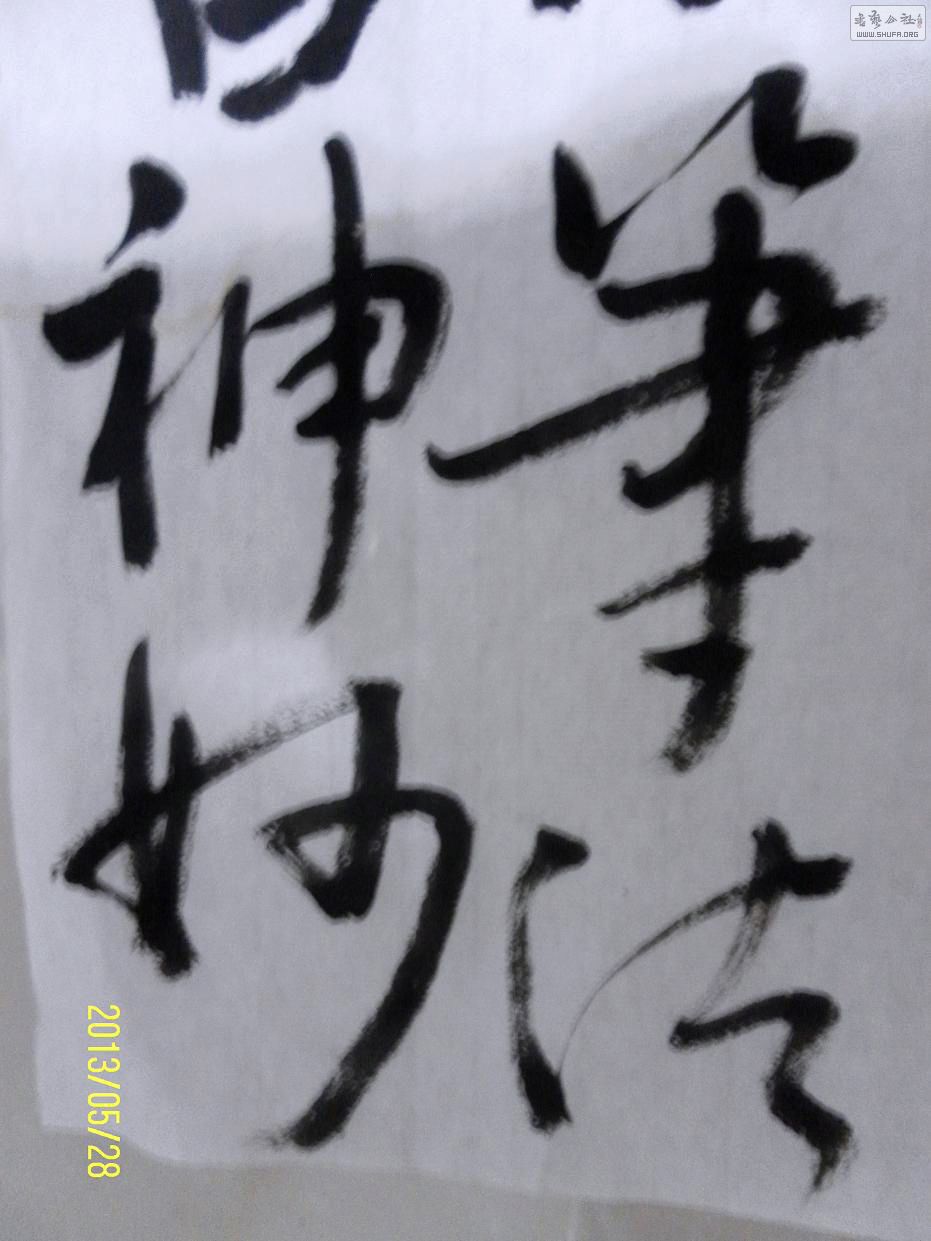 筆法
神妙
書藝公社
WWW.SHUFA.ORG
2013/05/28